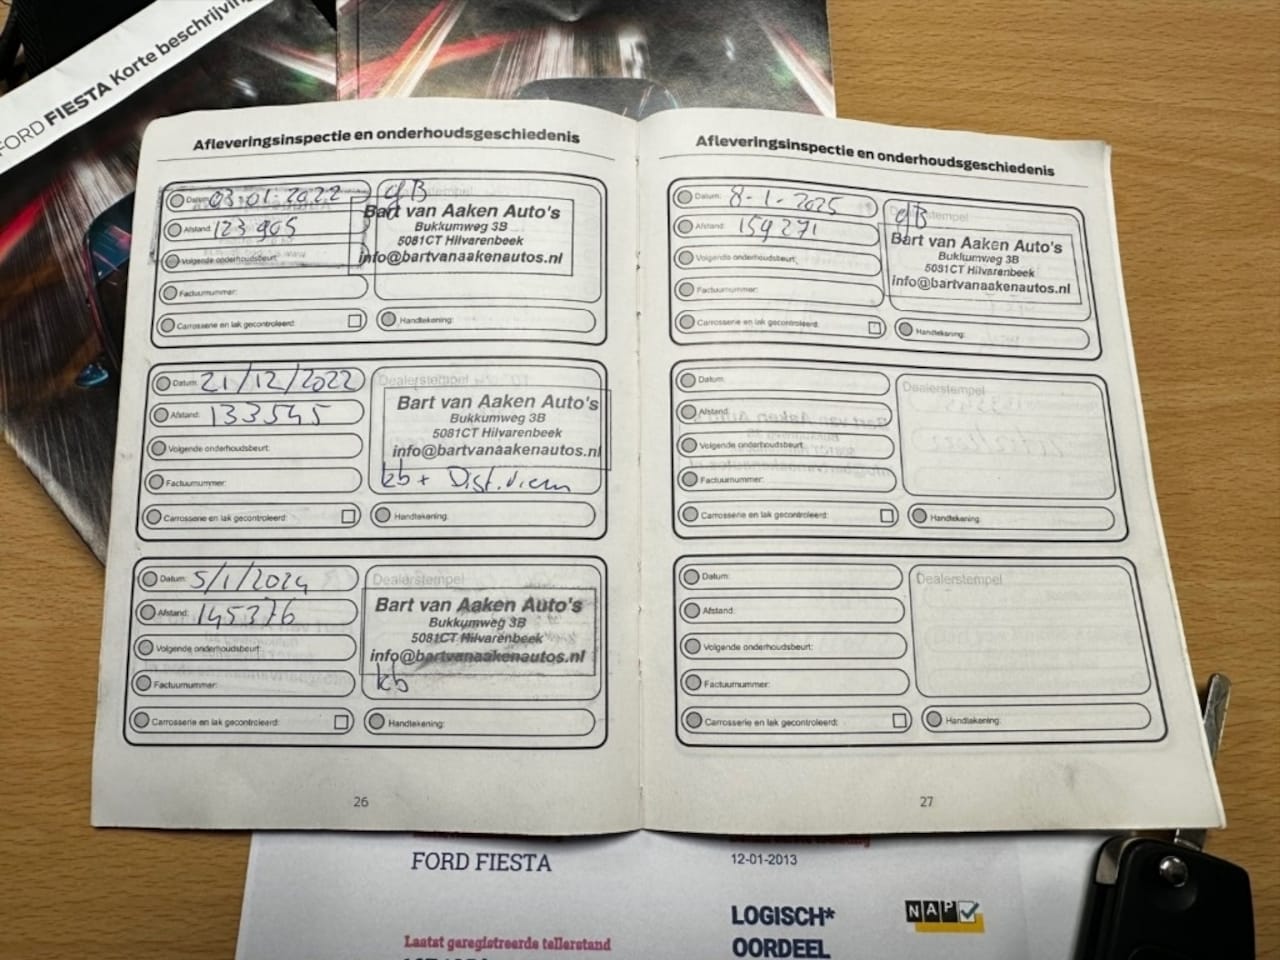 FORD FIESTA Korte beschrijving
Afleveringsinspectie en onderhoudsgeschiedenis
Datum: 03-01-2022
gB
Afstand: 123905
Volgende onderhoudsbeurt:
Factuurnummer:
Carrosserie en lak gecontroleerd:
Bart van Aaken Auto's
Bukkumweg 3B
5081CT Hilvarenbeek
info@bartvanaakenautos.nl
Handtekening:
Datum: 21/12/2022
Afstand: 133545
Volgende onderhoudsbeurt:
Factuurnummer:
Carrosserie en lak gecontroleerd:
Dealerstempel
Bart van Aaken Auto's
Bukkumweg 3B
5081CT Hilvarenbeek
info@bartvanaakenautos.nl
kb + Dist.riem
Handtekening:
Datum: 5/1/2024
Afstand: 145376
Volgende onderhoudsbeurt:
Factuurnummer:
Carrosserie en lak gecontroleerd:
Dealerstempel
Bart van Aaken Auto's
Bukkumweg 3B
5081CT Hilvarenbeek
info@bartvanaakenautos.nl
kb
Handtekening:
26
Afleveringsinspectie en onderhoudsgeschiedenis
Datum: 8-1-2025
Afstand: 159271
Volgende onderhoudsbeurt:
Factuurnummer:
Carrosserie en lak gecontroleerd:
gB
Bart van Aaken Auto's
Bukkumweg 3B
5081CT Hilvarenbeek
info@bartvanaakenautos.nl
Handtekening:
Datum:
Afstand:
Volgende onderhoudsbeurt:
Factuurnummer:
Carrosserie en lak gecontroleerd:
Dealerstempel
Handtekening:
Datum:
Afstand:
Volgende onderhoudsbeurt:
Factuurnummer:
Carrosserie en lak gecontroleerd:
Dealerstempel
Handtekening:
27
FORD FIESTA
12-01-2013
LOGISCH*
OORDEEL
NAP
Laatst geregistreerde tellerstand